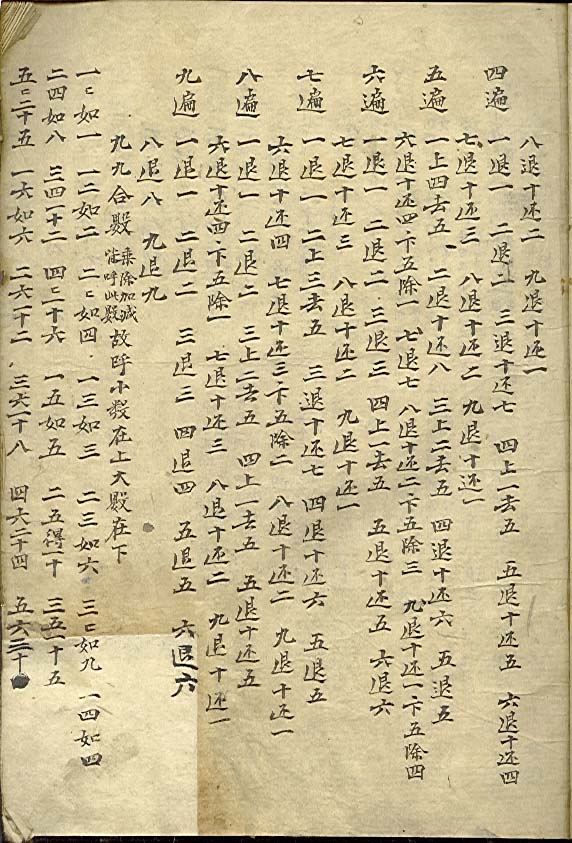 八退十还二 九退十还一
四遍 一退一 二退二 三退十还七 四上一去五 五退十还五 六退十还四
七退十还三 八退十还二 九退十还一
五遍 一上四去五 二退十还八 三上二去五 四退十还六 五退五
六退十还四卞五除一 七退七 八退十还二卞五除三 九退十还一卞五除四
六遍 一退一 二退二 三退三 四上一去五 五退十还五 六退六
七退十还三 八退十还二 九退十还一
七遍 一退一 二上三去五 三退十还七 四退十还六 五退五
六退十还四 七退十还三卞五除二 八退十还二 九退十还一
八遍 一退一 二退二 三上二去五 四上一去五 五退十还五
六退十还四卞五除一 七退十还三 八退十还二 九退十还一
九遍 一退一 二退二 三退三 四退四 五退五 六退六
八退八 九退九
九九合数 乘除加减皆呼此数 故呼小数在上大数在下
一〻如一 一二如二 二〻如四 一三如三 二三如六 三〻如九 一四如四
二四如八 三四十二 四〻十六 一五如五 二五得十 三五一十五
五〻二十五 一六如六 二六十二 三六十八 四六二十四 五六三十